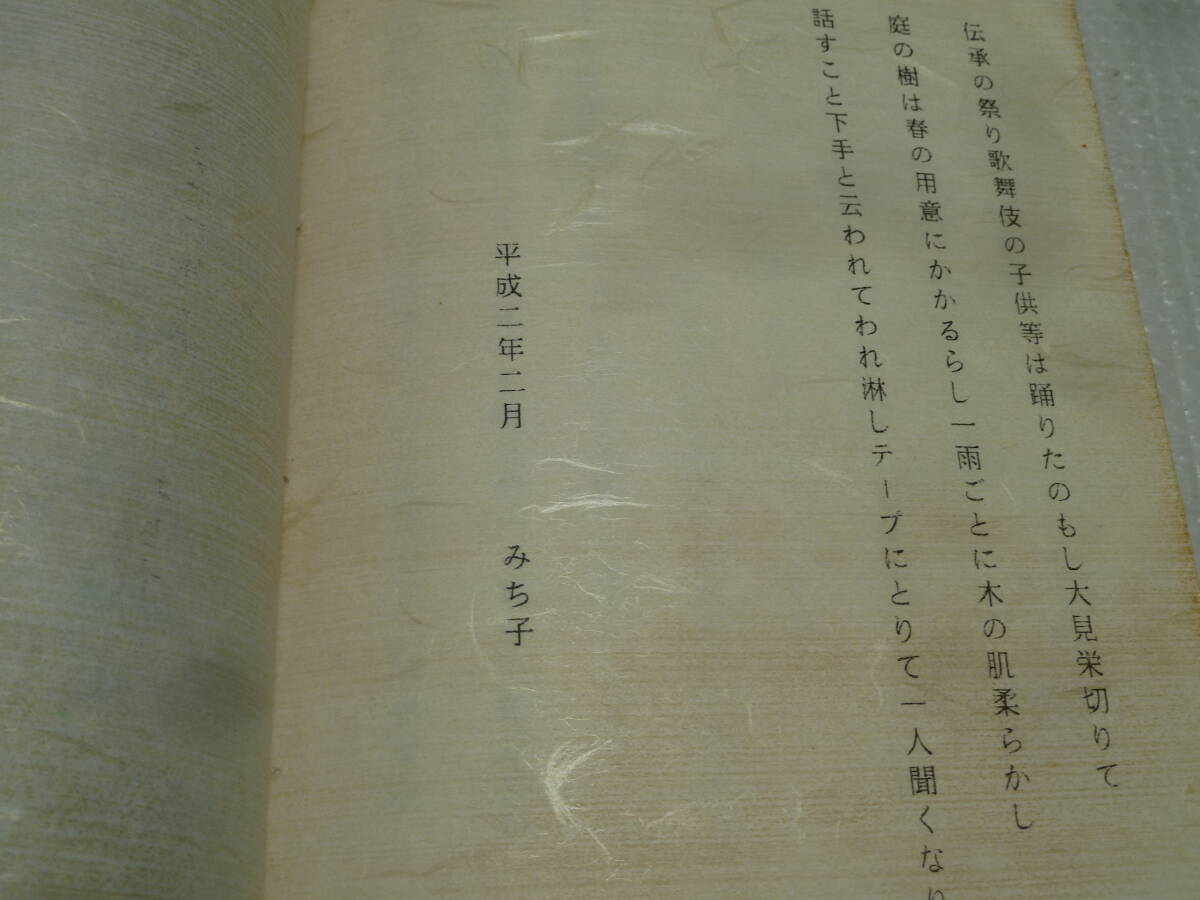 伝承の祭り歌舞伎の子供等は踊りたのもし大見栄切りて
庭の樹は春の用意にかかるらし一雨ごとに木の肌柔らかし
話すこと下手と云われてわれ淋しテープにとりて一人聞くなり
平成二年二月　みち子